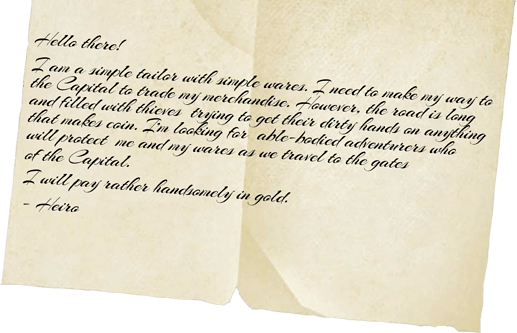 Hello there!
I am a simple tailor with simple wares. I need to make my way to
the Capital to trade my merchandise. However, the road is long
and filled with thieves trying to get their dirty hands on anything
that makes coin. I'm looking for able-bodied adventurers who
will protect me and my wares as we travel to the gates
of the Capital.
I will pay rather handsomely in gold.
- Heiro